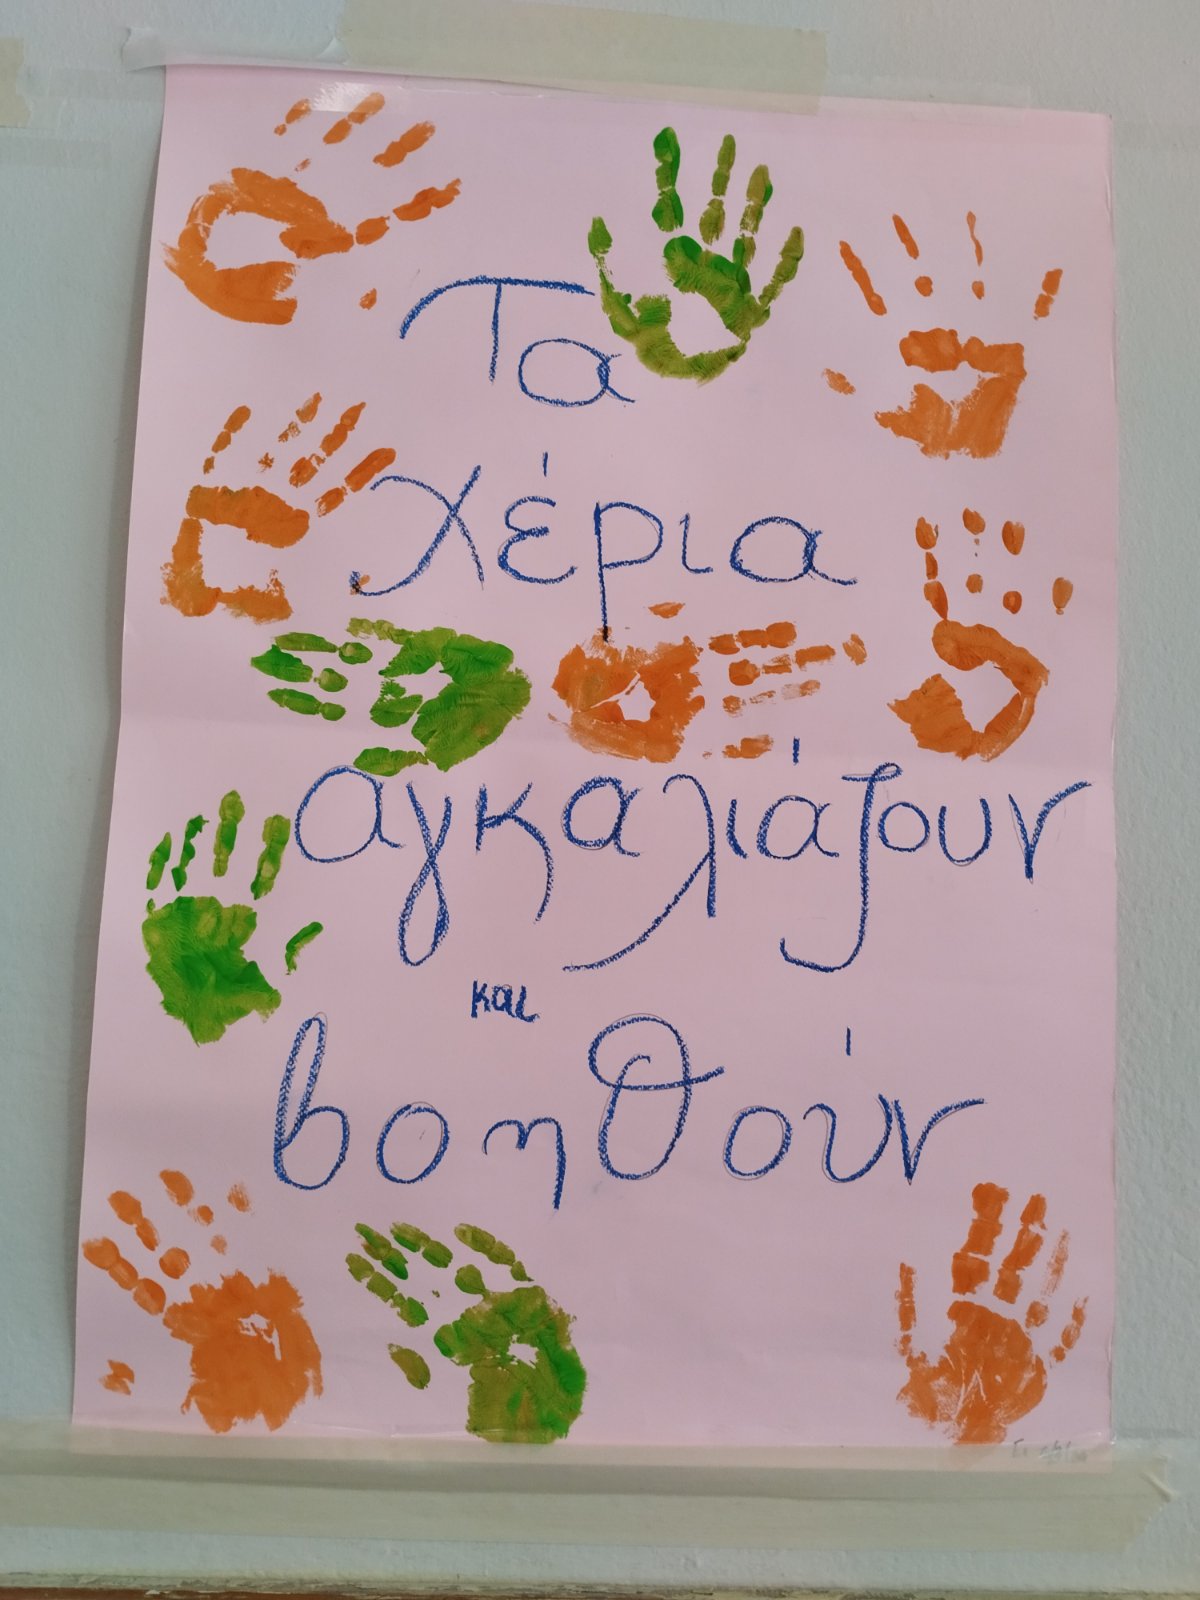 Τα
χέρια
αγκαλιάζουν
και
βοηθούν